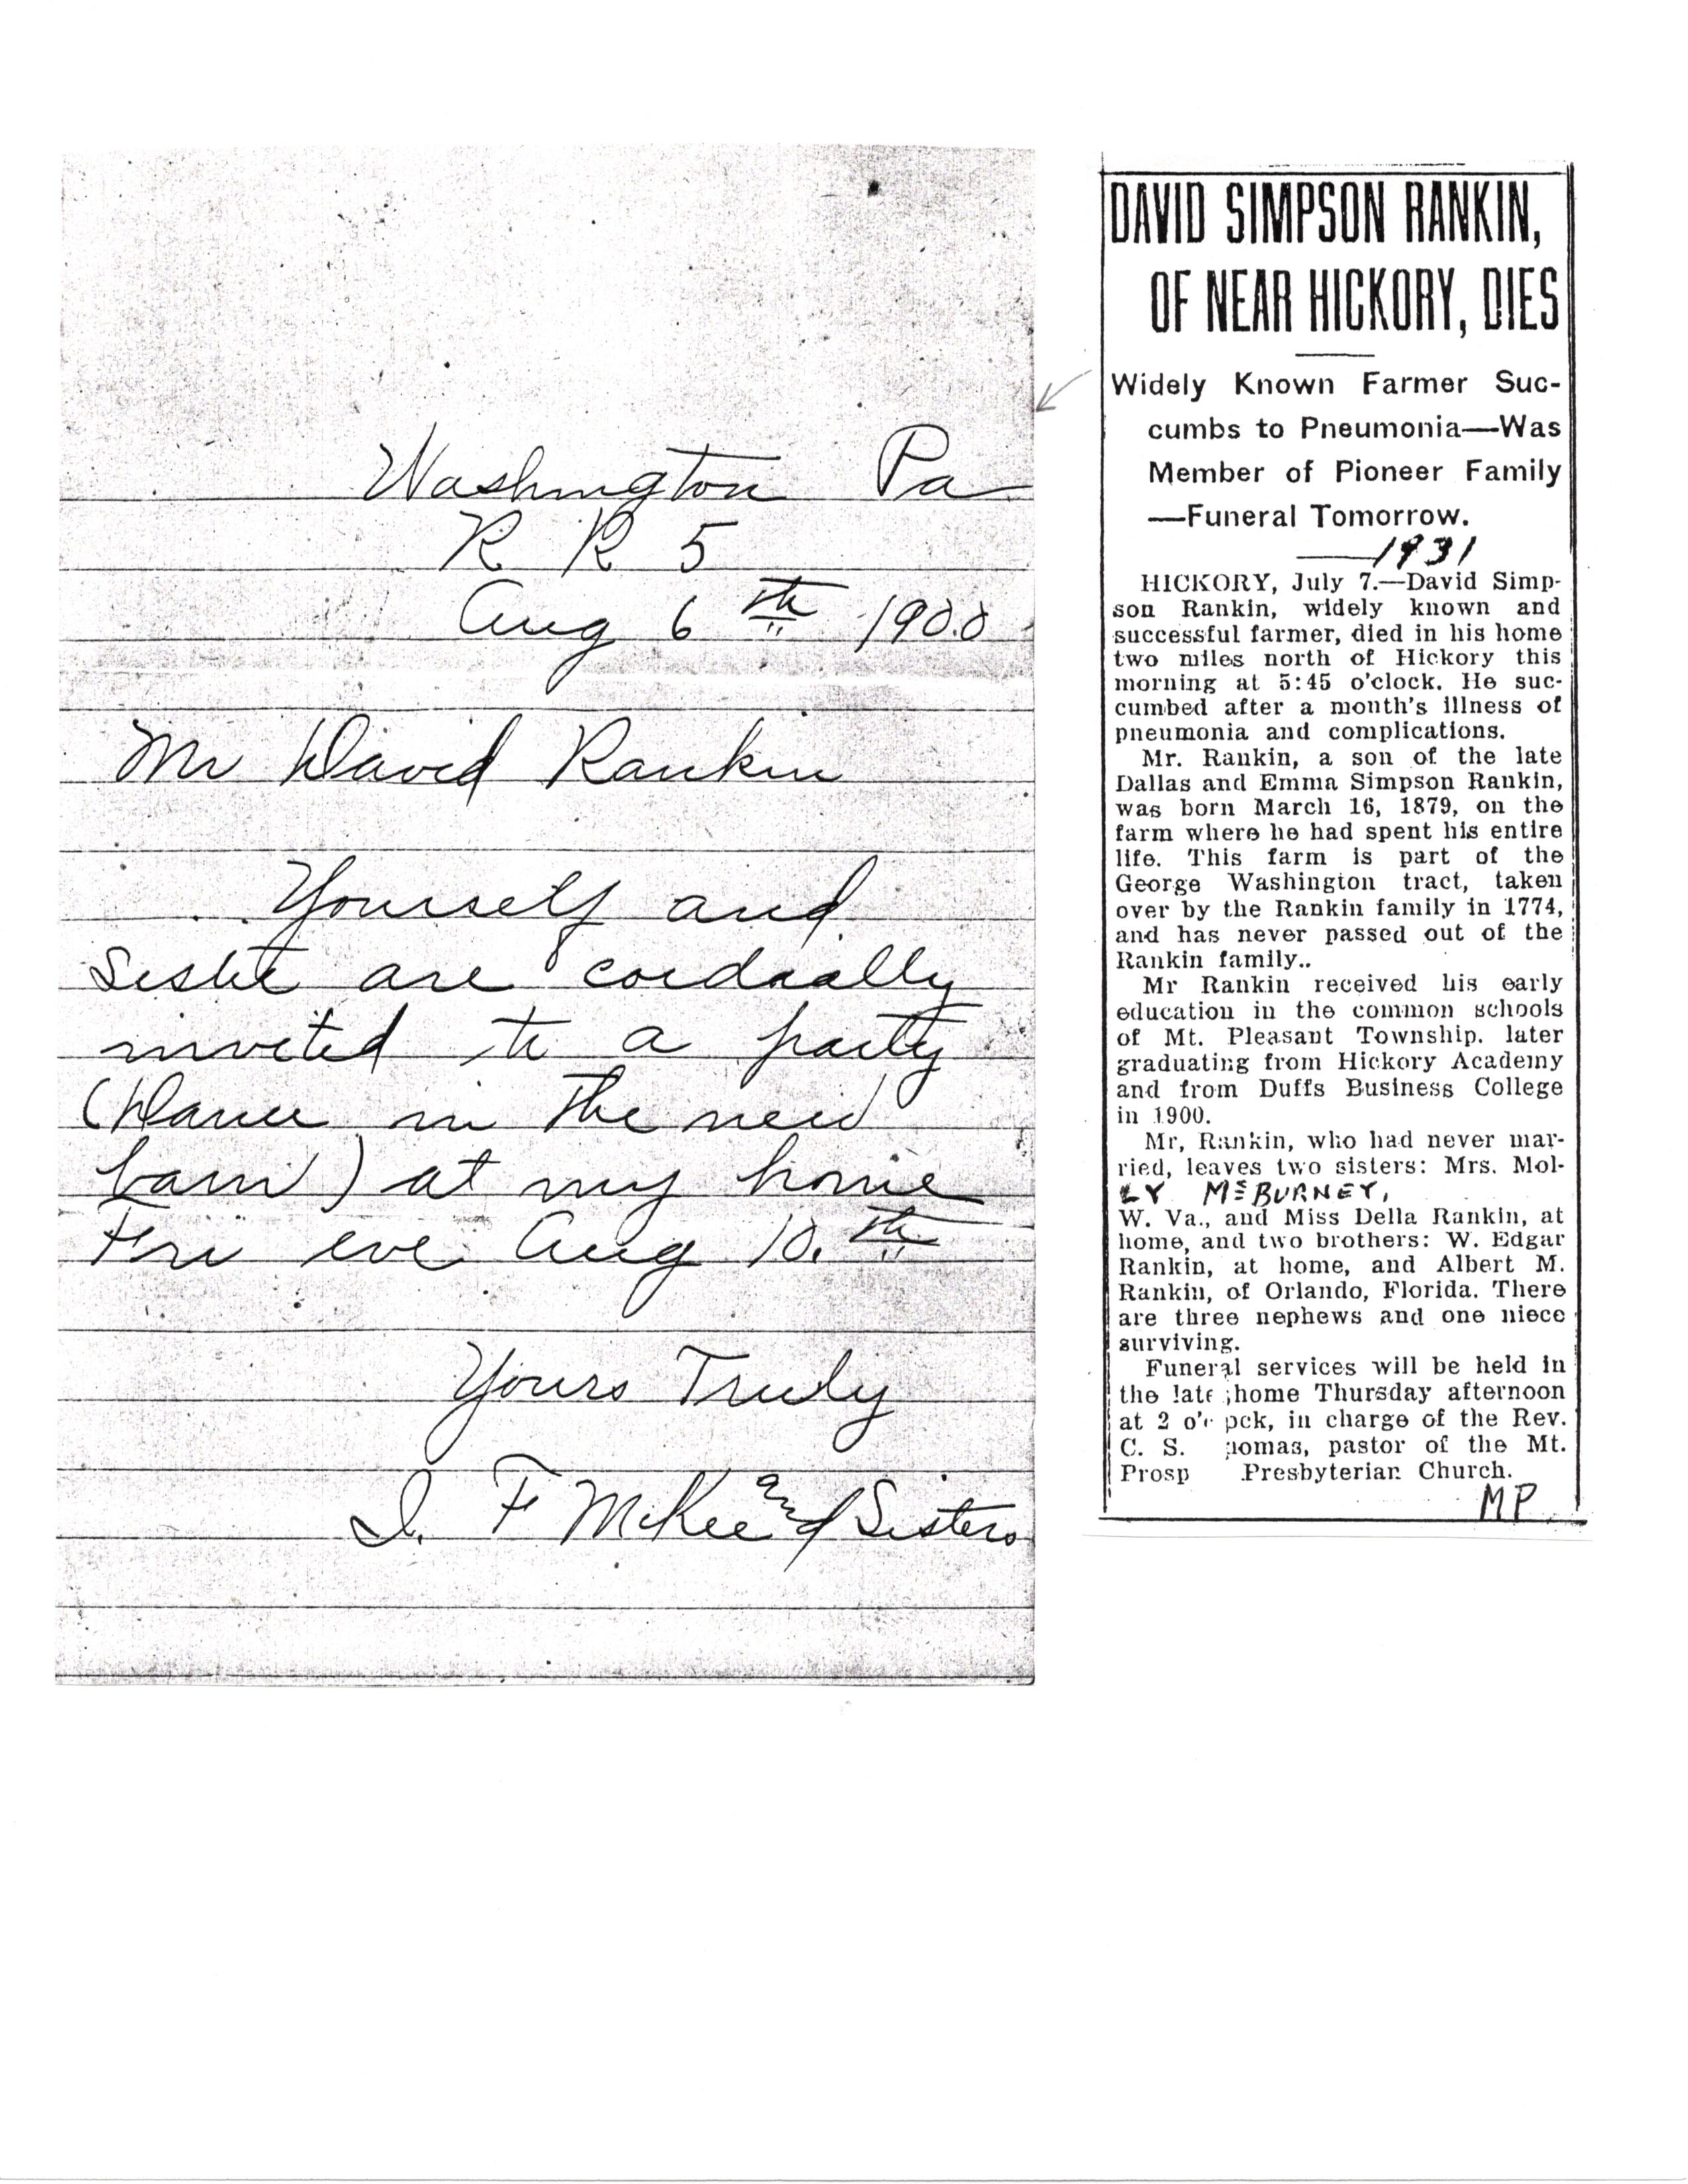 Washington Pa
R R 5
Aug 6th 1900
Mr David Rankin
Yourself and
Sister are cordially
invited to a party
(Dance in the new
barn) at my home
Fri eve Aug 10.th
Yours Truly
I. F McKee and Sisters
DAVID SIMPSON RANKIN,
OF NEAR HICKORY, DIES
Widely Known Farmer Suc-
cumbs to Pneumonia—Was
Member of Pioneer Family
—Funeral Tomorrow.
1931
HICKORY, July 7.—David Simp-
son Rankin, widely known and
successful farmer, died in his home
two miles north of Hickory this
morning at 5:45 o'clock. He suc-
cumbed after a month's illness of
pneumonia and complications.
Mr. Rankin, a son of the late
Dallas and Emma Simpson Rankin,
was born March 16, 1879, on the
farm where he had spent his entire
life. This farm is part of the
George Washington tract, taken
over by the Rankin family in 1774,
and has never passed out of the
Rankin family..
Mr Rankin received his early
education in the common schools
of Mt. Pleasant Township. later
graduating from Hickory Academy
and from Duffs Business College
in 1900.
Mr, Rankin, who had never mar-
ried, leaves two sisters: Mrs. Mol-
LY McBURNEY,
W. Va., and Miss Della Rankin, at
home, and two brothers: W. Edgar
Rankin, at home, and Albert M.
Rankin, of Orlando, Florida. There
are three nephews and one niece
surviving.
Funeral services will be held in
the late home Thursday afternoon
at 2 in charge of the Rev.
C. S. pastor of the Mt.
Presbyterian Church.
MP